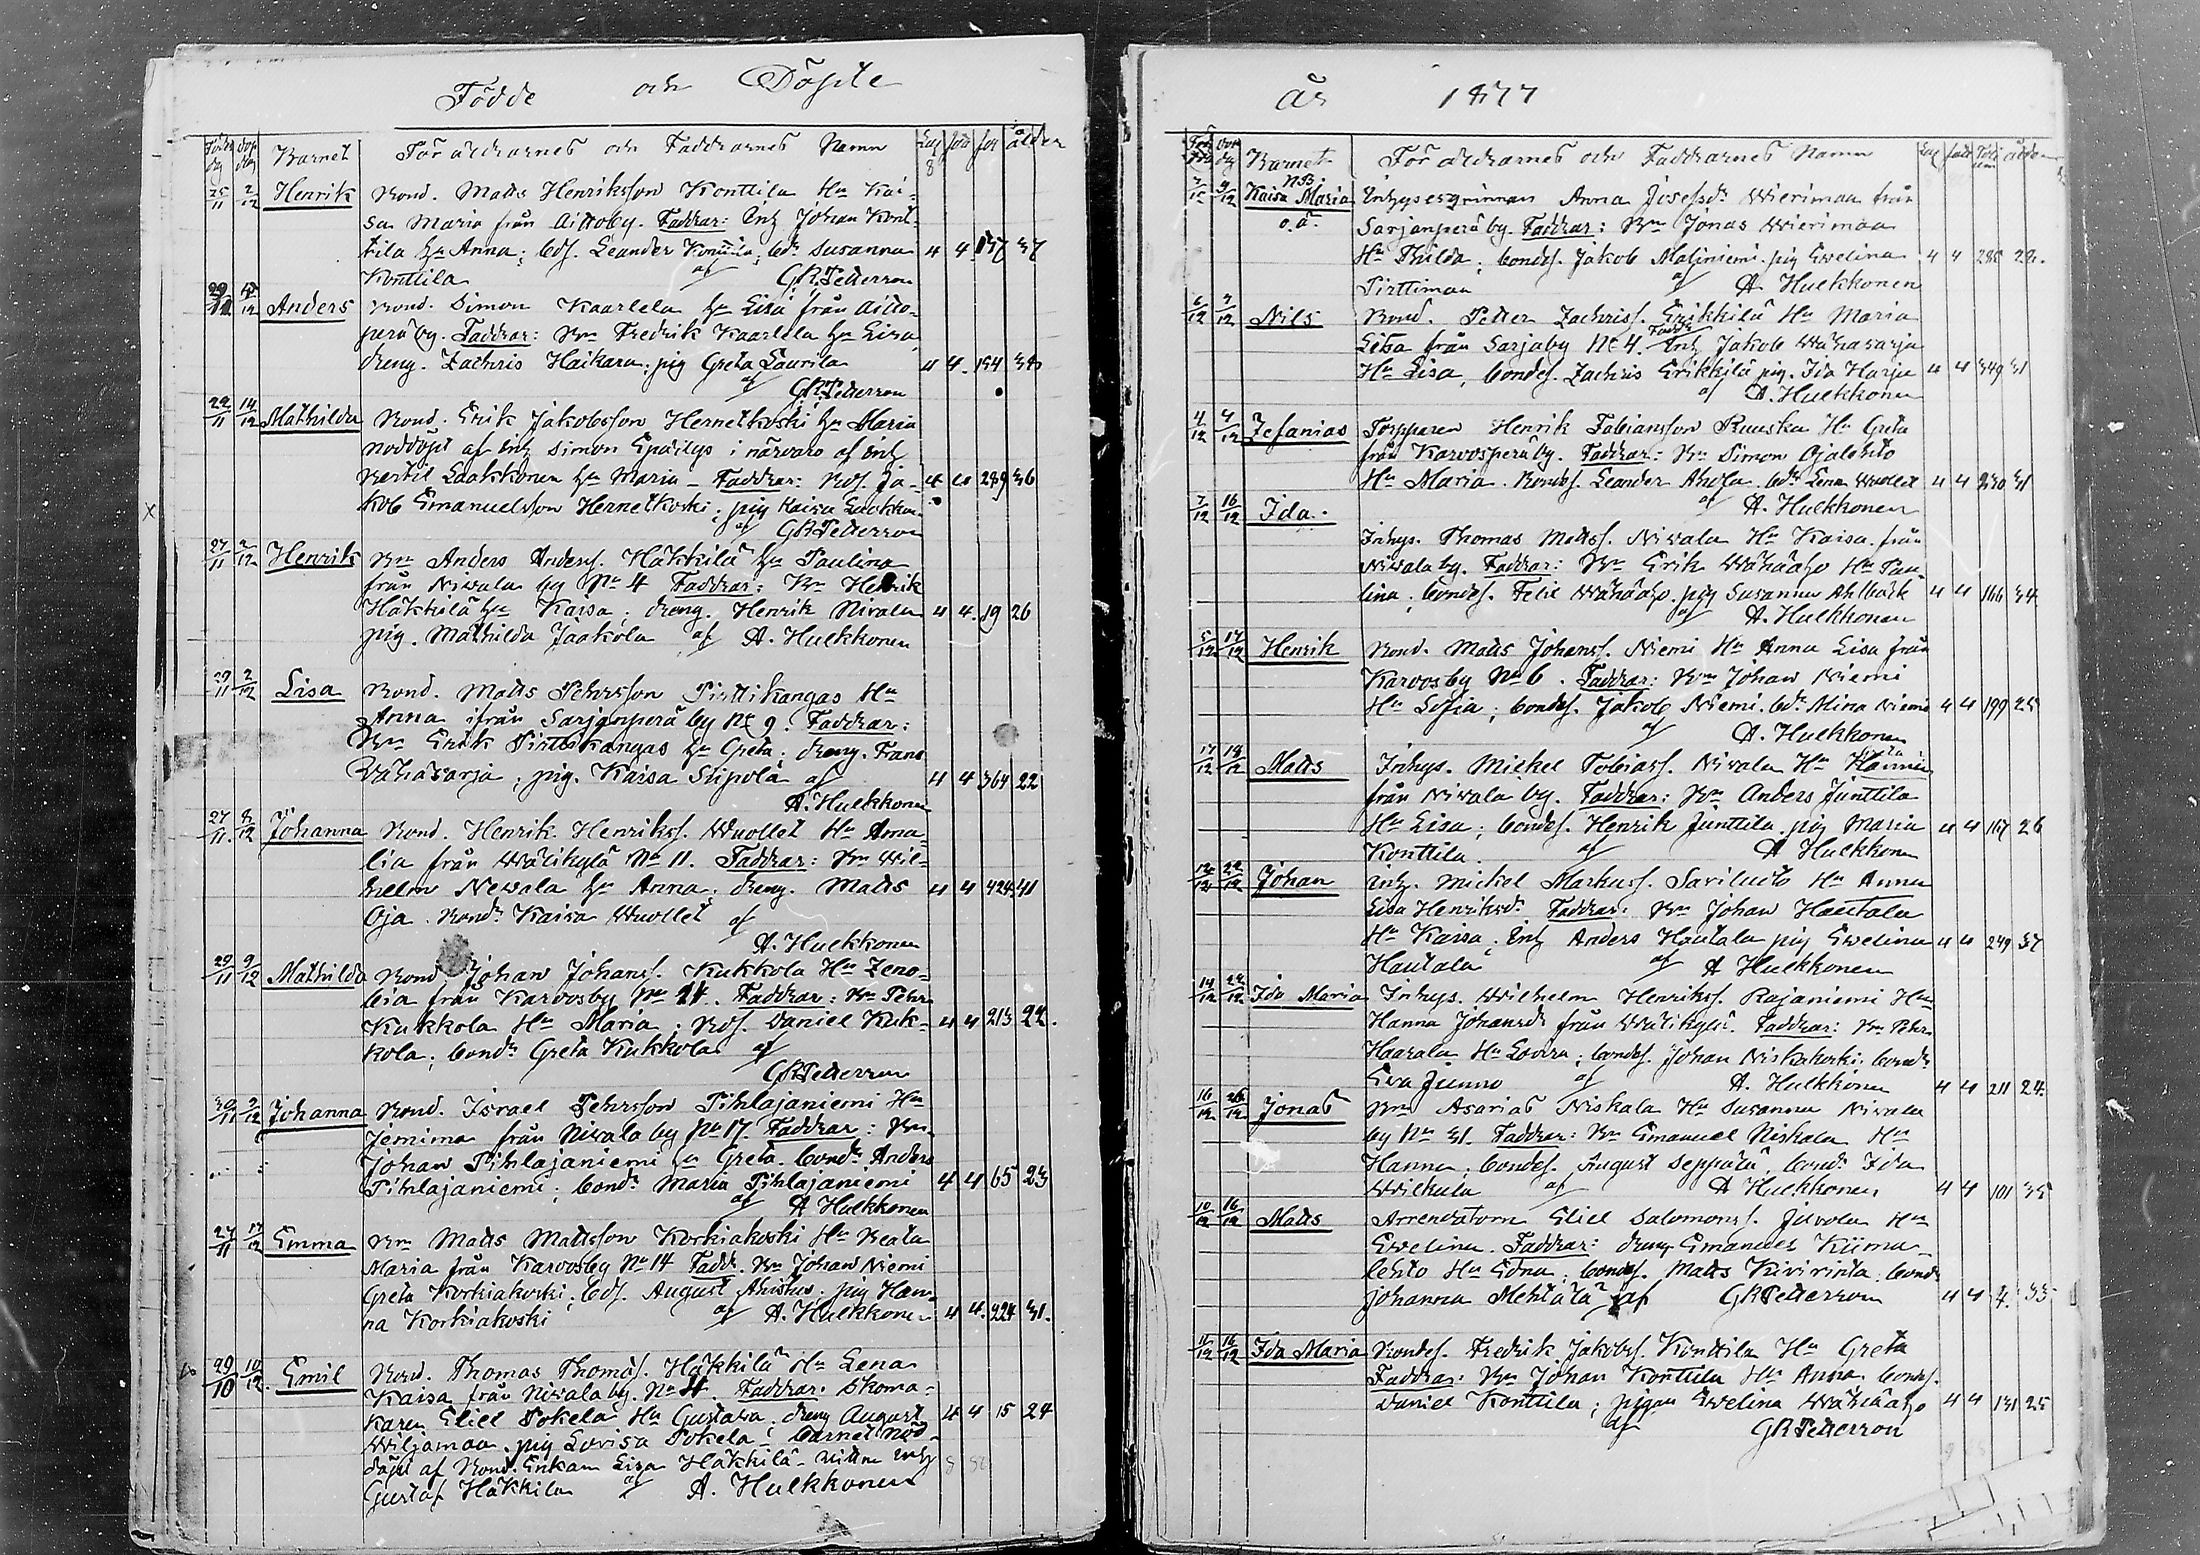 Födde och Döpte
Födse dg döp dag Barnet Föräldrarnes och Faddrarnes Namn ålder
25/11 2/12 Henrik Bond. Matts Henriksson Konttila Hu Kai-
sa Maria från Aittoby. Faddrar: Inh Johan Kont-
tila hu Anna; bds. Leander Konttila, bdr Susanna 4 4 137 37
Konttila af GRPetterson
29/11 /12 Anders Bond. Simon Kaarlela hu Lisa från Aitto-
perä by. Faddrar: Bn Fredrik Kaarlela hu Lisa,
dreng. Zachris Haikara, pig Greta Laurila 4 4. 154
af GRPetterson
22/11 14/12 Mathilda Bond. Erik Jakobsson Hernetkoski hu Maria
nöddöpt af inh Simon i närvaro af inh
Bertil Laakkonen hu Maria - Faddrar: Bds. Ja- 289 36
kob Emanuelsson Hernetkoski; pig Kaisa
af GRPetterson
27/11 2/12 Henrik Bn Anders Anderss. Häkkilä hu Paulina
från Nivala by No 4 Faddrar: Bn Henrik
Häkkilä hu Kaisa; dreng. Henrik Nivala 4 4. 19 26
pig. Mathilda Jaakola af A. Hulkkonen
29/11 2/12 Lisa Bond. Matts Pehrsson Pirttikangas Hu
Anna ifrån Sarjanperä by No 9. Faddrar:
Bn Erik Pirttikangas hu Greta; dreng. Frans
Vähäsarja, pig. Kaisa Sipola af 4 4 364 22
A. Hulkkonen
27/11. 8/12 Johanna Bond. Henrik Henrikss. Wuollet Hu Ama-
lia från Wälikylä No 11. Faddrar: Bn Wil-
helm Nevala hu Anna; dreng. Matts 4 4 424 41
Oja. Bondr Kaisa Wuollet af
A. Hulkkonen
29/11 9/12 Mathilda Bond Johan Johanss. Kukkola Hu Zeno-
bia från Karvosby No 24. Faddrar: Bn Pehr
Kukkola Hu Maria; Bds. Daniel Kuk- 4 4 213 22.
kola; bondr Greta Kukkola af
GRPetterson
30/11 9/12 Johanna Bond. Israel Pehrsson Pihlajaniemi Hu
Jemima från Nivala by No 17. Faddrar: Bn
Johan Pihlajaniemi hu Greta. bondr Anders
Pihlajaniemi; bondr Maria Pihlajaniemi 4 4 65 23
af A Hulkkonen
27/11 17/12 Emma Bn Matts Mattsson Korkiakoski Hu Beata
Maria från Karvosby No 14 Fadd. Bn Johan Niemi
Greta Korkiakoski; bds. August Ahistus; pig Han-
na Korkiakoski af A. Hulkkonen 4 4. 224 31.
29/10 10/12. Emil Bond. Thomas Thomass. Häkkilä Hu Lena
Kaisa från Nivala by. No 4. Faddrar: Skoma-
karen Eliel Tokela Hu Gustava; dreng August 4 4 15 24
Wiljamaa, pig Lovisa Tokela; barnet nöd-
döpt af Bond. Enkan Lisa Häkkilä - vittne inhy
Gustaf Häkkila af A. Hulkkonen
år 1877
Barnet Föräldrarnes och Faddrarnes Namn ålder
9/12 Kaisa Maria NB. Inhysesqvinnan Anna Josefsdr Wierimaa från
o.ä. Sarjanperä by. Faddrar: Bn Jonas Wierimaa
Hu Thilda; bondes. Jakob Maliniemi. pig Evelina 4 4 285
Pirttimaa af A. Hulkkonen
6/12 9/12 Nils Bond. Petter Zachriss. Erikkilä Hu Maria
Lisa från Sarjaby No 4. Faddr Inh Jakob Wähäsarja
Hu Lisa, bondes. Zachris Erikkilä pig. Ida Harju 4 4 349 31
af A. Hulkkonen
4/12 9/12 Zefanias Torpparen Henrik Fabiansson Ruuska Hu Greta
från Karvosperä by. Faddrar: Bn Simon Ojalehto
Hu Maria. Bondes. Leander Ahola. bdr Lena Wuollet 4 4 230 31
af A. Hulkkonen
7/12 16/12 Ida.
Inhys. Thomas Mattss. Nivala Hu Kaisa från
Nivala by. Faddrar: Bn Erik Wähäaho Hu Pau-
lina; bondes. Felix Wähäaho. pig Susanna Ahlbäck 4 4 166 34
af A. Hulkkonen
5/12 17/12 Henrik Bond. Matts Johanss. Niemi Hu Anna Lisa från
Karvosby No 6. Faddrar: Bn Johan Niemi
Hu Sofia; bondes. Jakob Niemi. bdr Mina Niemi 4 4 199 25
af A. Hulkkonen
17/12 19/12 Matts Inhys. Mickel Tobiass. Nivala Hu Hanna
från Nivala by. Faddrar: Bn Anders Junttila
Hu Lisa; bondes. Henrik Junttila. pig Maria 4 4 167 26
Konttila. af A Hulkkonen
12/12 22/12 Johan Inh. Mickel Markuss. Saviluoto Hu Anna
Lisa Henriksdr. Faddrar: Bn Johan Hautala
Hu Kaisa. Inh Anders Hautala pig Evelina 4 4 249 37
Hautala af A Hulkkonen
19/12 22/12 Ida Maria Inhys. Wilhelm Henrikss. Rajaniemi Hu
Hanna Johansdr från Wälikylä. Faddrar: Bn Pehr
Haarala Hu Lovisa; bondes. Johan Niskakoski. bondr
Eva Junno af A. Hulkkonen 4 4 211 24.
16/12 26/12 Jonas Bn Asarias Niskala Hu Susanna Nivala
by No 31. Faddrar: Bn Emanuel Niskala Hu
Hanna; bondes. August Seppälä, bondr Ida
Wilkula af A Hulkkonen 4 4 101 35
10/12 16/12 Matts Arrendatorn Eliel Salomonss. Junola Hu
Evelina. Faddrar: dreng Emanuel Kiima-
lehto Hu Edna; bondes. Matts Kivirinta; bondr
Johanna Mehtälä af GRPetterson 4 4 7. 33
11/12 16/12 Ida Maria Bondes. Fredrik Jakobss. Konttila Hu Greta
Faddrar: Bn Johan Konttila Hu Anna. bondes.
Daniel Konttila; pigan Evelina Wähäaho 4 4 131 25
af GRPetterson